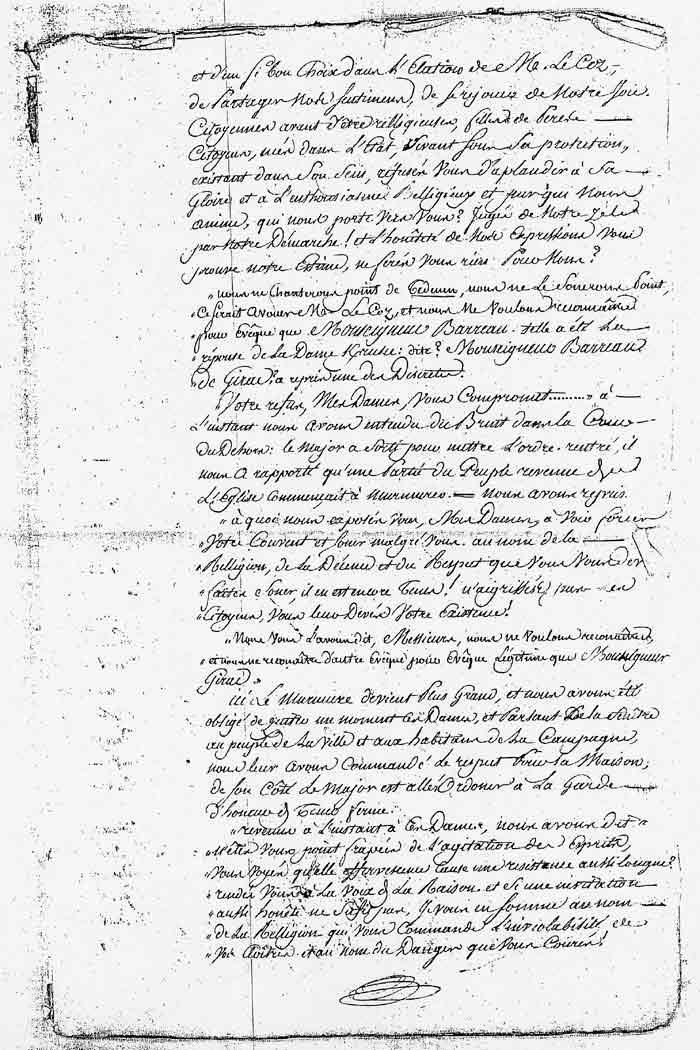 et d'un si bon Choix dans l'Elation de M. Le Coz,
de Partager nos sentimens, de se rejouir de Notre Joie.
Citoyennes avant d'être relligieuses, filles de Peres
Citoyens, nées dans L'Etat vivant sous sa protection,
existant dans son sein, refusés vous d'aplaudir à sa
Gloire et à L'enthousiasme Relligieux et pur qui Nous
anime, qui nous porte vers vous? Jugés de Notre zele
par Notre Démarche! et l'honêteté de Nos Expressions vous
prouve notre Estime, ne ferés vous rien Pour Nous?
"nous ne Chanterons point de Tedeum, nous ne Le sonerons Point,
"Ce serait avouer M. Le Coz, et nous ne voulons reconnaître
"pour Evêque que Monseigneur Barreau. telle a été La
"réponse de La Dame Kruse: dite? Monseigneur Barreau
"de Girac? a repris une des Discretes.
"Votre refus, Mes Dames, vous Compromet........." à
L'instant nous avons entendu du Bruit dans la Cour
du Dehors: le Major a sorti pour mettre L'ordre. rentré, il
nous a rapporté qu'une Partie du Peuple revenue de
L'Eglise Commençait à murmurer. — nous avons repris.
"à quoi nous exposés vous, Mes Dames, à voir forcer
"Votre Couvent et soner malgré vous. au nom de la
"Relligion, de La Décence et du Respect que vous vous devés
"faites soner il en est encore Tems! n'aigrissés pas les
"Citoyens, vous leur Devés Votre Existence!
"Nous vous L'avons dit, Messieurs, nous ne voulons reconnaître,
"et nous ne reconnaîtrons d'autre Evêque pour Evêque Légitime que Monseigneur
Girac"
ici Le Murmure devient Plus Grand, et nous avons été
obligé de quitter un moment ces Dames, et Parlant De la fenêtre
au peuple de La Ville et aux habitans de La Campagne,
nous leur avons Commandé Le respect Pour la Maison;
de son Côté Le Major est allé Ordoner à La Garde
d'honeur de Tenir ferme.
"revenus à L'instant à ces Dames, nous avons dit
"N'êtes Vous point frapées de L'agitation des Esprits,
"Vous Voyés qu'elle effervescence cause une resistance aussi longue?
"rendés Vous à La voix de La Raison. et Si une invitation
"aussi honête ne Sufit pas, je vous en somme au nom
"de La Relligion qui vous Commande L'inviolabilité de
"Vos Cloîtres et au nom du Danger que Vous Courés!